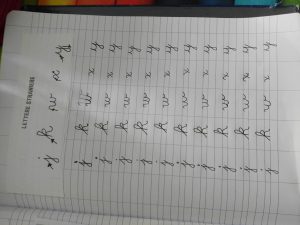 LETTERE STRANIERE
*j *k w x *y
j k w x y
j k w x y
j k w x y
j k w x y
j k w x y
j k w x y
j k w x y
j k w x y
j k w x y
j k w x y
j k w x y